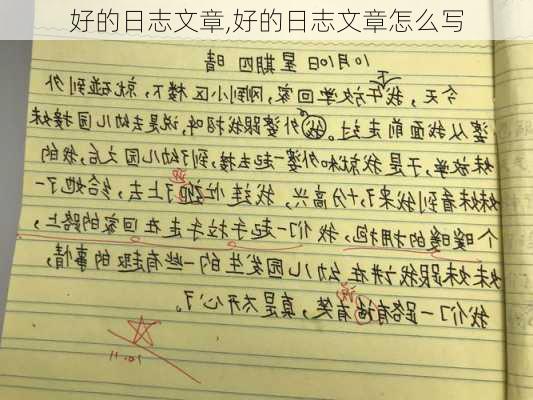 好的日志文章,好的日志文章怎么写
10月10日 星期四 晴
今天,我下午放学回家,刚到小区楼下,就碰到外
婆从我面前走过。我外婆跟我招呼,说是去幼儿园接妹
妹放学,于是我就和外婆一起去接,到了幼儿园之后,我的
妹妹看到我来了,十分高兴,我连忙跑了上去,给她了一
个暖暖的拥抱,我们一起手拉手走在回家的路上,
妹妹跟我讲在幼儿园发生的一些有趣的事情,
我们一路有说有笑,真是太开心了。
10.11